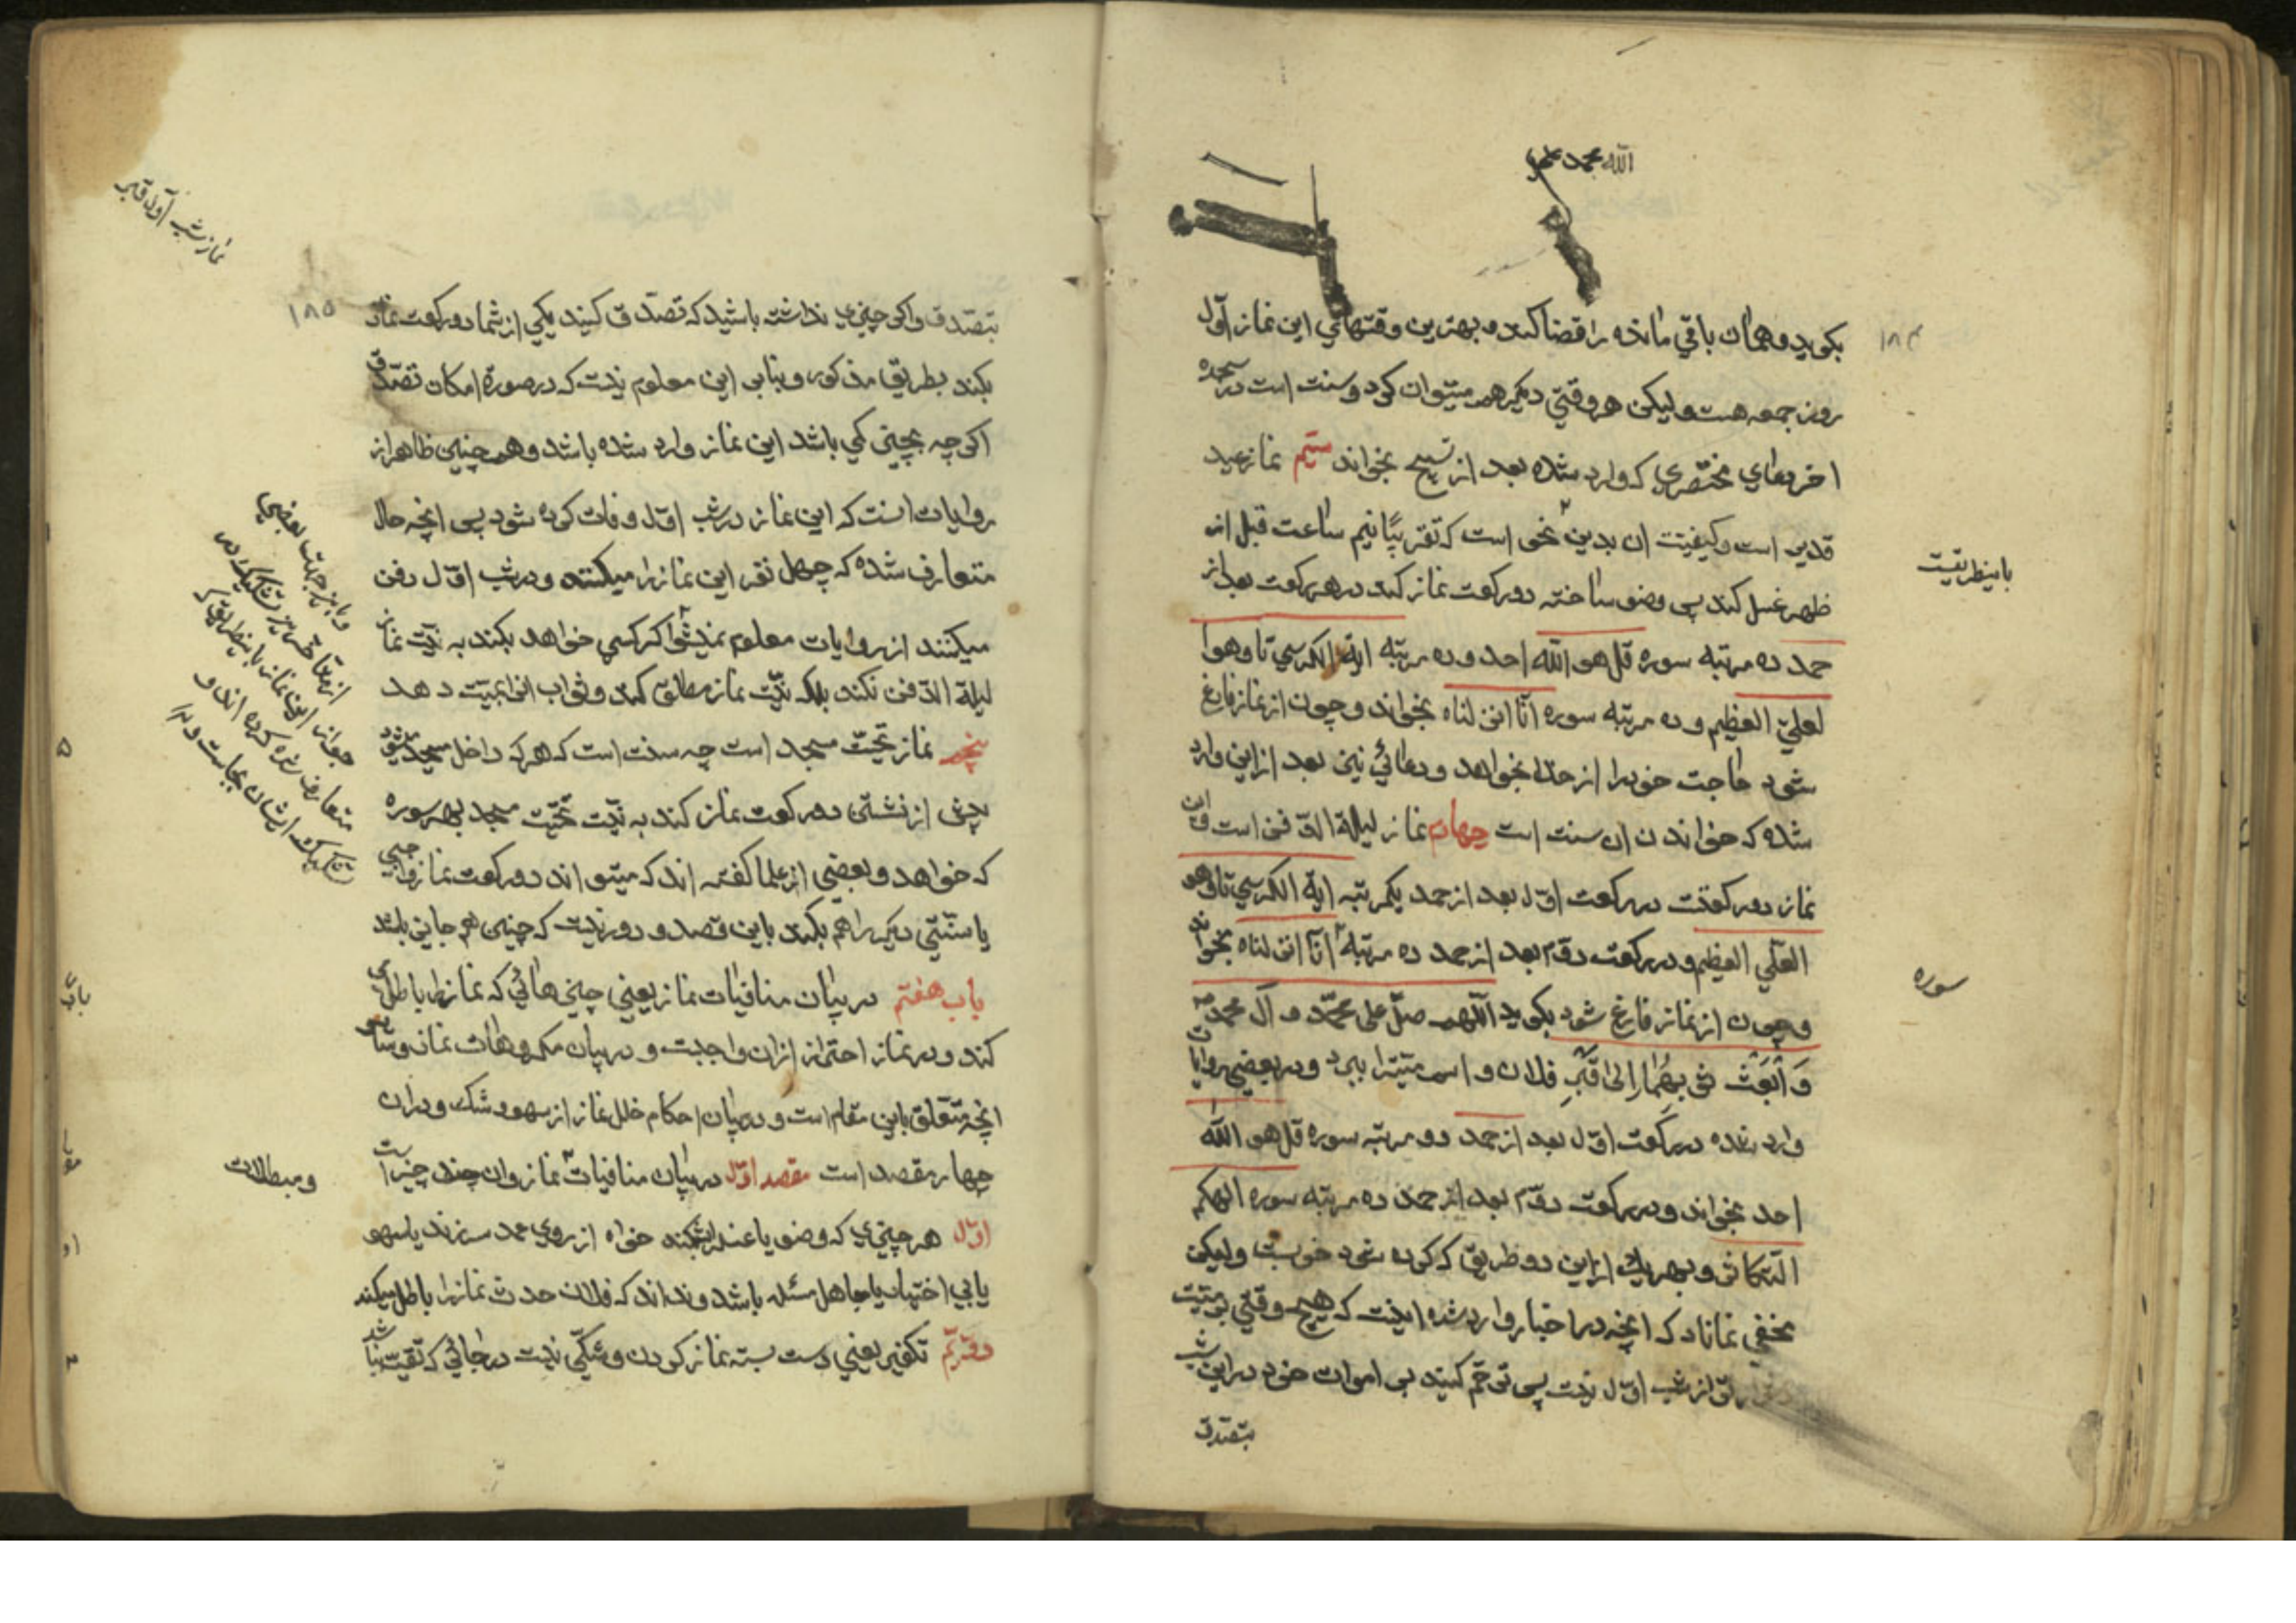 الله محمد
بکوید و همان باقی مانده را قضا کند و بهترین وقتهای این نماز اول
روز جمعه هست و لیکن هر وقتی دیکر هم میتوان کرد و سنت است در سجده
اخر دعای مختصری که وارد شده بعد از تسبیح بخواند سیم نماز عید
غدیر است و کیفیت ان بدین نحو است که تقریبًا نیم ساعت قبل از
ظهر غسل کند پس وضو ساخته دو رکعت نماز کند در هر رکعت بعد از
حمد ده مرتبه سوره قل هو الله احد و ده مرتبه ایة الکرسی تا و هو
العلیّ العظیم و ده مرتبه سوره انّا انزلناه بخواند و چون از نماز فارغ
شود حاجت خود را از خدا بخواهد و دعائی نیز بعد از این وارد
شده که خواندن ان سنت است چهارم نماز لیلة الدّفن است و این
نماز دو رکعتست در رکعت اوّل بعد از حمد یکمرتبه ایة الکرسی تا و هو
العلی العظیم و در رکعت دوّم بعد از حمد ده مرتبه انّا انزلناه بخواند
و چون از نماز فارغ شود بکوید اللّهم صلّ علی محمّد و آل محمّد
وَ ابْعَثْ ثوابهما اِلی قَبْرِ فلان و اسم میّترا ببرد و در بعضی روایات
وارد شده در رکعت اوّل بعد از حمد دو مرتبه سوره قل هو الله
احد بخواند و در رکعت دوّم بعد از حمد ده مرتبه سوره الهیکم
التکاثر و بهر یک از این دو طریق که کرده شود خوبست و لیکن
مخفی نماناد که انچه در اخبار وارد شده اینست که هیچ وقتی بر میّت
از شب اوّل نیست پس ترحّم کنید بر اموات خود در این شب
بتصدق
باینطریقست
سوره
۱۸۴
نماز شب اول قبر
۱۸۵
بتصدق و اکر چیزی نداشته باشید که تصدّق کنید یکی از شما دو رکعت نماز
بکند بطریق مذکور و بنابر این معلوم نیست که در صورة امکان تصدّق
اکر چه بچیز کمی باشد این نماز وارد شده باشد و همچنین ظاهر از
روایات انست که این نماز در شب اوّل وفات کرده شود پس انچه حال
متعارف شده که چهل نفر این نماز را میکنند و در شب اوّل دفن
میکنند از روایات معلوم نمیشود اکر کسی خواهد بکند به نیّت نماز
لیلة الدّفن نکند بلکه نیّت نماز مطلق کند و ثواب انرا بمیّت دهد
پنجم نماز تحیّت مسجد است چه سنت است که هر که داخل مسجد میشود
پیش از نشستن دو رکعت نماز کند به نیّت تحیّت مسجد بهر سوره
که خواهد و بعضی از علما کفته اند که میتواند دو رکعت نماز واجبی
یا سنّتی دیکر را هم بکند باین قصد و دور نیست که چنین هم جایز باشد
باب هفتم در بیان منافیات نماز یعنی چیزهائی که نماز را باطل می
کند و در نماز احتراز از ان واجبست و در بیان مکروهات نماز و سایر
انچه متعلّق باین مقام است و در بیان احکام خلل نماز از سهو و شک و در ان
چهار مقصد است مقصد اوّل در بیان منافیات نماز و ان چند چیز است
اوّل هر چیزی که وضو یا غسل را بشکند خواه از روی عمد سر زند یا سهو
یا بی اختیار یا جاهل مسئله باشد و نداند که فلان حدث نماز را باطل میکند
دوّیّم تکفیر یعنی دست بسته نماز کردن و شکّی نیست در جائی که تقیّه نباشد
و باین جهت بعضی
جواز این نماز باینطریق
متعارف شده کرده اند و
و مبطلات
باب
۵
۲